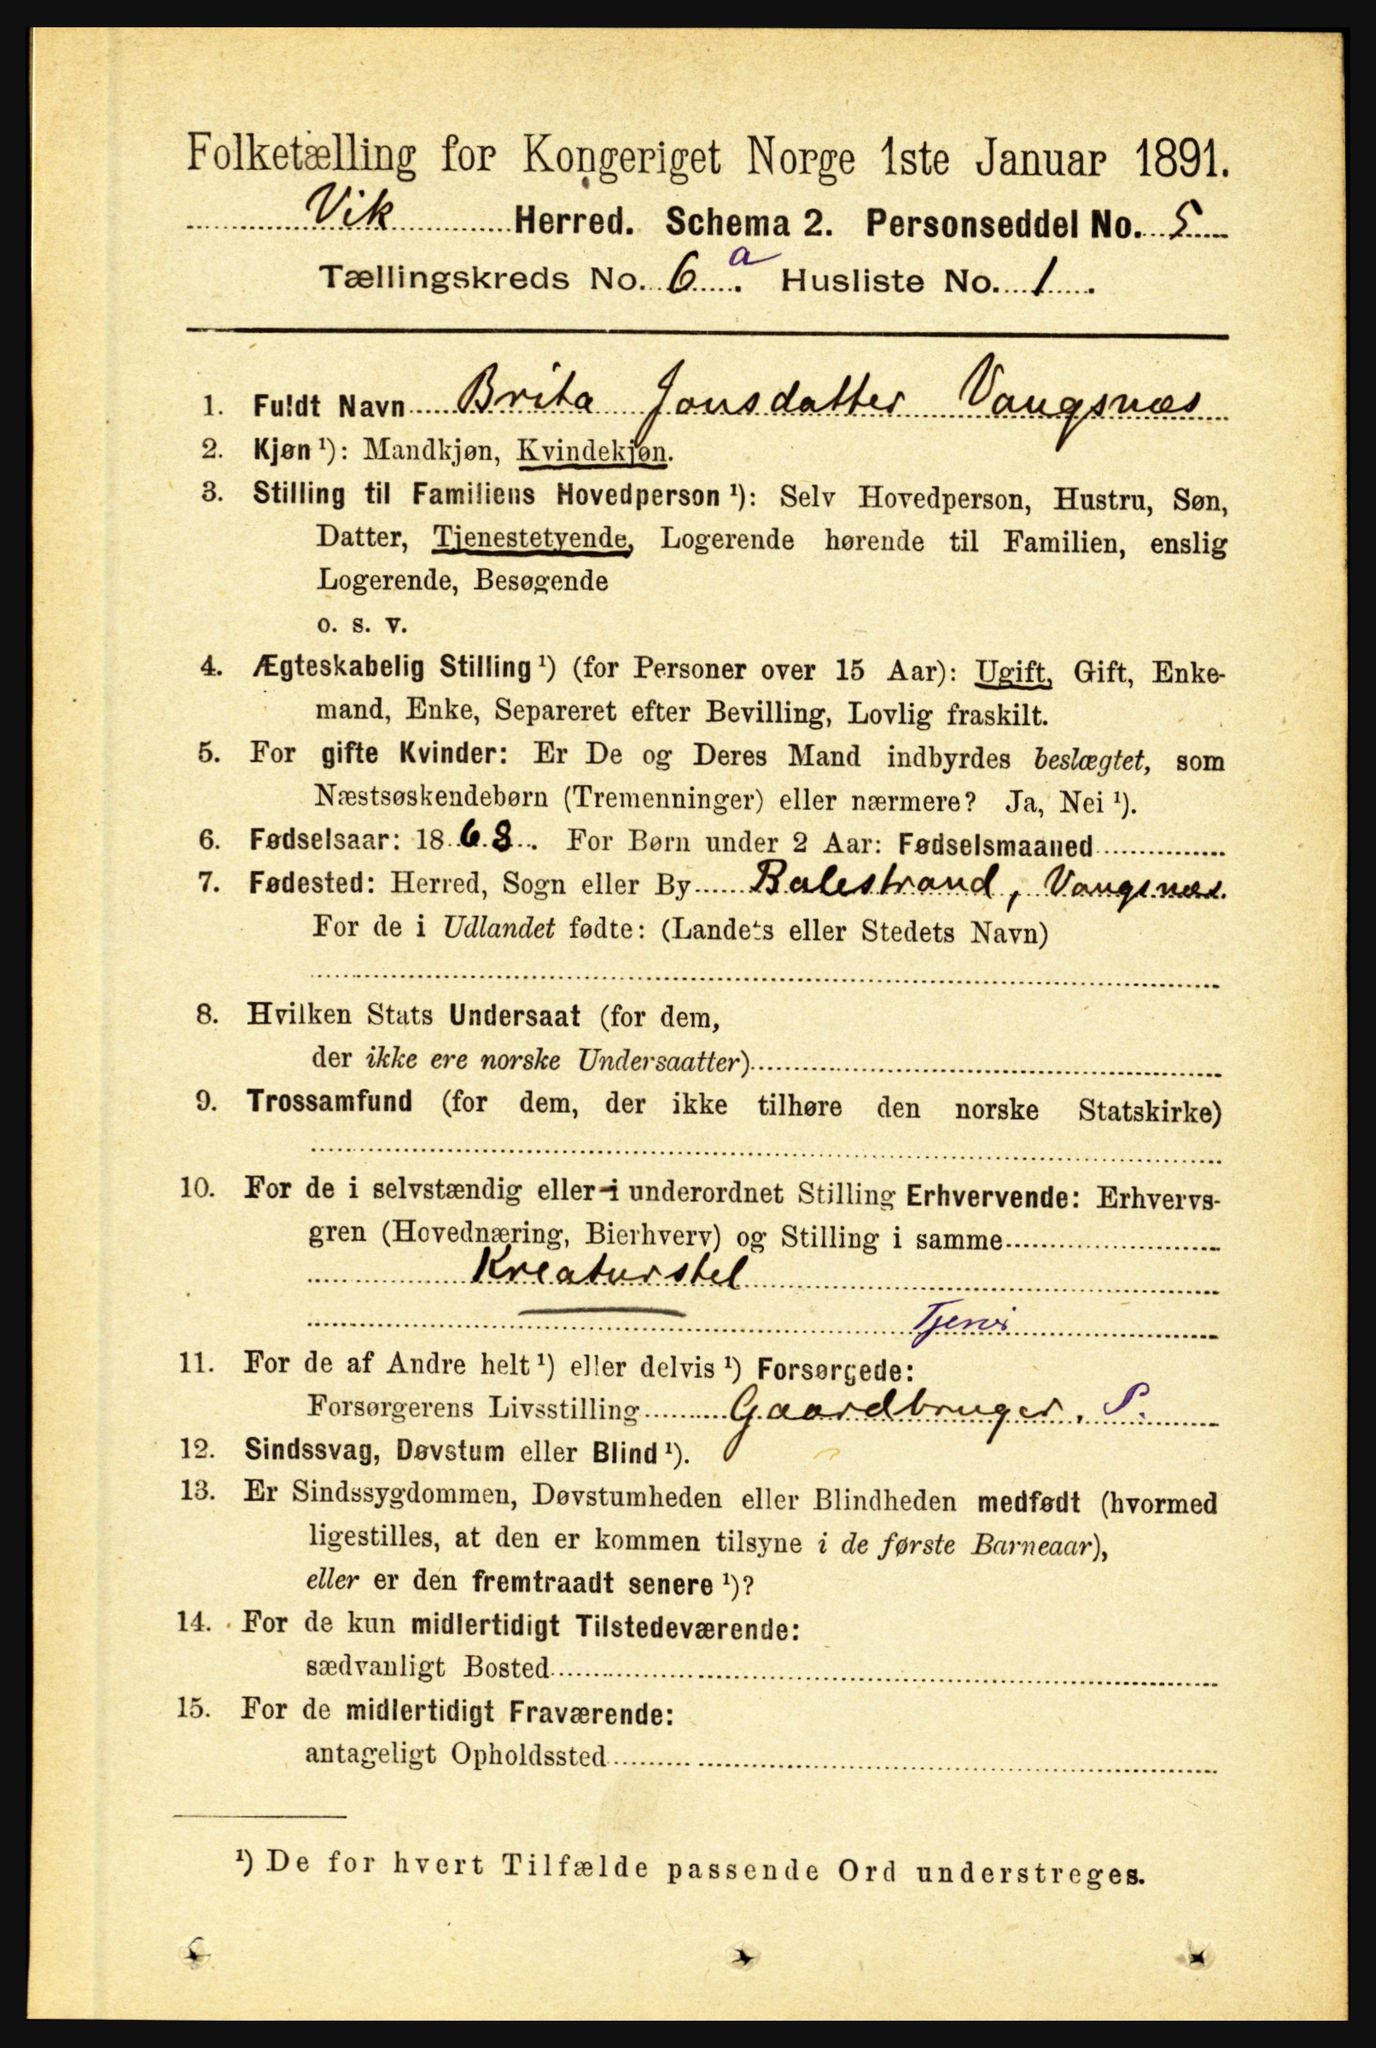 Folketælling for Kongeriget Norge 1ste Januar 1891.
Vik Herred. Schema 2. Personseddel No. 5
Tællingskreds No. 6 a. Husliste No. 1.
1. Fuldt Navn Brita Jonsdatter Vangsnæs
2. Kjøn ¹): Mandkjøn, Kvindekjøn.
3. Stilling til Familiens Hovedperson ¹): Selv Hovedperson, Hustru, Søn,
Datter, Tjenestetyende, Logerende hørende til Familien, enslig
Logerende, Besøgende
o. s. v.
4. Ægteskabelig Stilling ¹) (for Personer over 15 Aar): Ugift, Gift, Enke-
mand, Enke, Separeret efter Bevilling, Lovlig fraskilt.
5. For gifte Kvinder: Er De og Deres Mand indbyrdes beslægtet, som
Næstsøskendebørn (Tremenninger) eller nærmere? Ja, Nei ¹).
6. Fødselsaar: 1868. For Børn under 2 Aar: Fødselsmaaned
7. Fødested: Herred, Sogn eller By Balestrand, Vangsnæs.
For de i Udlandet fødte: (Landets eller Stedets Navn)
8. Hvilken Stats Undersaat (for dem,
der ikke ere norske Undersaatter)
9. Trossamfund (for dem, der ikke tilhøre den norske Statskirke)
10. For de i selvstændig eller i underordnet Stilling Erhvervende: Erhvervs-
gren (Hovednæring, Bierhverv) og Stilling i samme
Kreaturstel
Tjener
11. For de af Andre helt ¹) eller delvis ¹) Forsørgede:
Forsørgerens Livsstilling Gaardbruger. S.
12. Sindssvag, Døvstum eller Blind ¹).
13. Er Sindssygdommen, Døvstumheden eller Blindheden medfødt (hvormed
ligestilles, at den er kommen tilsyne i de første Barneaar),
eller er den fremtraadt senere ¹)?
14. For de kun midlertidigt Tilstedeværende:
sædvanligt Bosted
15. For de midlertidigt Fraværende:
antageligt Opholdssted
¹) De for hvert Tilfælde passende Ord understreges.